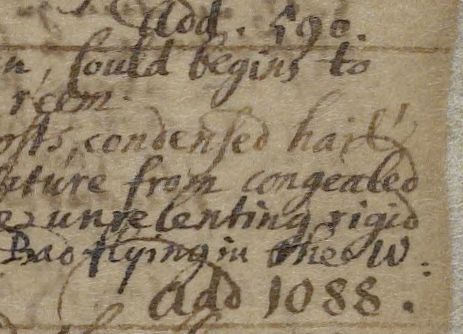 add. 590.
n, Could begins to
reem.
osts, condensed hail
uture from congealed
unrelenting rigid
Bao flying in the W.
add 1088.